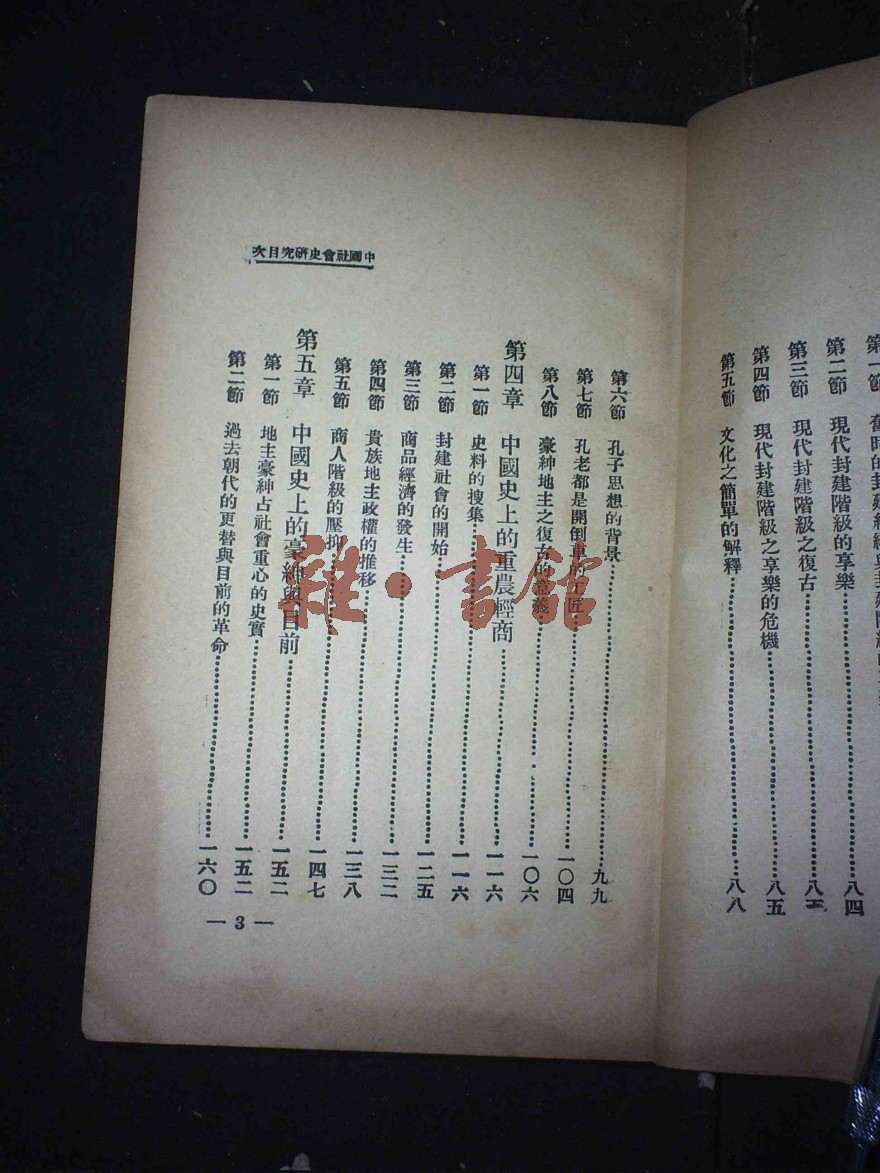 第一節 舊時的封建
第二節 現代封建階級的享樂……八四
第三節 現代封建階級之復古……八五
第四節 現代封建階級之享樂的危機……八五
第五節 文化之簡單的解釋……八八
中國社會史研究目次
第六節 孔子思想的背景……九九
第七節 孔老都是開倒車的工匠……一〇四
第八節 豪紳地主之復古的意義……一〇六
第四章 中國史上的重農輕商……一一六
第一節 史料的搜集……一一六
第二節 封建社會的開始……一二五
第三節 商品經濟的發生……一三二
第四節 貴族地主政權的推移……一三八
第五節 商人階級的壓抑……一四七
第五章 中國史上的豪紳與目前……一五二
第一節 地主豪紳占社會重心的史實……一五二
第二節 過去朝代的更替與目前的革命……一六〇
— 3 —
雜·書館